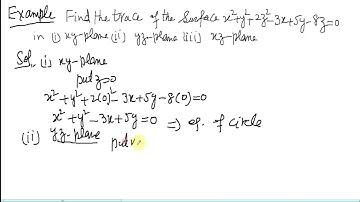 Example Find the trace of the Surface x²+y²+2z²-3x+5y-8z=0
in (i) xy-plane (ii) yz-plane (iii) xz-plane
Sol. (i) xy-plane
put z=0
x²+y²+2(0)²-3x+5y-8(0)=0
x²+y²-3x+5y=0 ⇒ eq. of circle
(ii) yz-plane
put